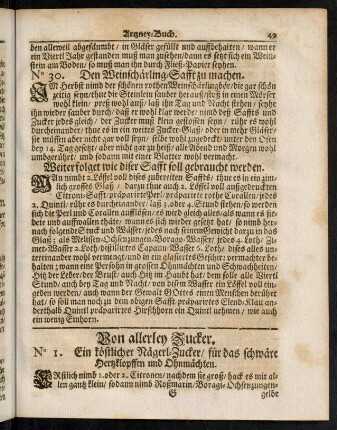 Artzney-Buch. 49
ben allerweil abgefäumbt / in Gläser gefüllt und auffbehalten / wann er
ein Viertl Jahr gestanden muß man zusehen / dann es setzt sich ein Wein-
stein am Boden / so muß man ihn durch Fließ-Papier seyhen.
N° 30. Den Weinschärling-Safft zu machen.
IM Herbst nimb der schönen rothen Weinschärlingbör / die gar schön
zeitig seyn / thue die Steinlein sauber darauß / stoß in einen Mörser
wohl klein / preß wohl auß / laß ihn Tag und Nacht stehen / seyhe
ihn wieder sauber durch / daß er wohl klar werde / nimb deß Saffts und
Zucker jedes gleich / der Zucker muß klein gestossen seyn / rühre es wohl
durcheinander / thue es in ein weites Zucker-Glaß / oder in mehr Gläser /
sie müssen aber nicht gar voll seyn / setze wohl zugedeckt / unter den Ofen
bey 14. Tag gesetzt / aber nicht gar zu heiß / alle Abend und Morgen wohl
umbgerührt / und sodann mit einer Blatter wohl vermacht.
Weiter folget wie diser Safft soll gebraucht werden.
MAn nimbt 2. Löffel voll dises zubereiten Saffts / thue es in ein zim-
lich grosses Glaß / darzu thue auch 2. Löffel voll außgedruckten
Citroni-Safft / präparirte Perl / präparirte rothe Corallen / jedes
2. Quintl / rühre es durcheinander / laß 3. oder 4. Stund stehen / so werden
sich die Perl und Corallen aufflösen / es wird gleich alles / als wann es sie-
dete und auffwallen thäte / wann es sich wieder gesetzt hat / so nimb her-
nach folgende Stuck und Wässer / jedes nach seinem Gewicht darzu in das
Glaß: als Melissen-Ochsenzungen-Borago-Wasser / jedes 4. Loth / Zi-
ment-Wasser 2. Loth / distillirtes Capaun-Wasser 5. Loth / dises alles un-
tereinander wohl vermengt / und in ein glasirtes Geschirr / vermachter be-
halten; wann eine Persohn in grossen Ohnmächten und Schwachheiten /
Hitz der Leber / der Brust / auch Hitz im Haubt hat / dem solle alle Viertl
Stund / auch bey Tag und Nacht / von disem Wasser ein Löffel voll ein-
gegeben werden / auch wann der Gewalt Gottes einen Menschen berührt
hat / so soll man noch zu dem obigen Safft präparirtes Elend-Klau an-
derthalb Quintl präparirtes Hirschhorn ein Quintl nehmen / wie auch
ein wenig Einhorn.
Von allerley Zucker.
N° 1. Ein köstlicher Nägerl-Zucker / für das schwäre
Hertzklopffen und Ohnmächten.
ERstlich nimb 1. oder 2. Citronen / nachdem sie groß / hack es mit al-
len gantz klein / sodann nimb Roßmarin / Boragi-Ochsenzungen-
G gelbe